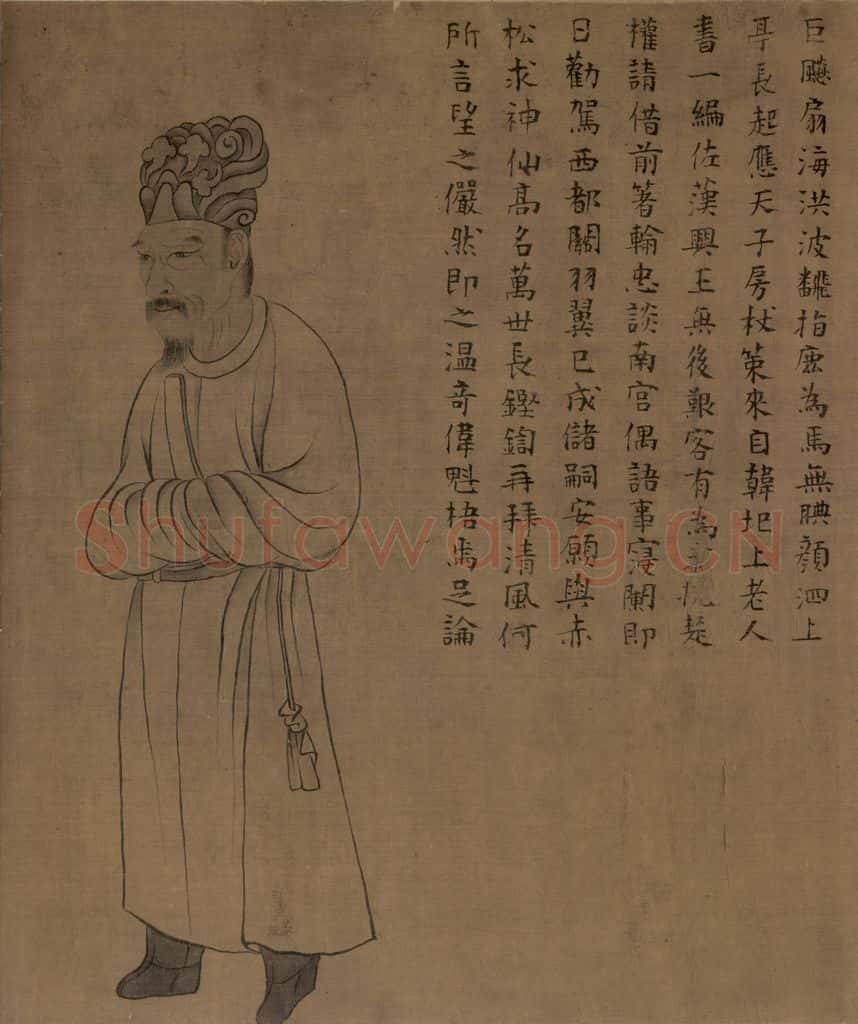 巨飈扇海洪波飜指鹿為馬無腆顏泗上
亭長起應天子房杖策來自韓圯上老人
書一編佐漢興王無後艱客有為橈楚
權請借前箸輪忠談南宮偶語事寖闌即
日勸駕西都關羽翼已成儲嗣安願與赤
松求神仙高名萬世長鏗鍧再拜清風何
所言望之儼然即之温奇偉魁梧焉足論
Shufawang.CN